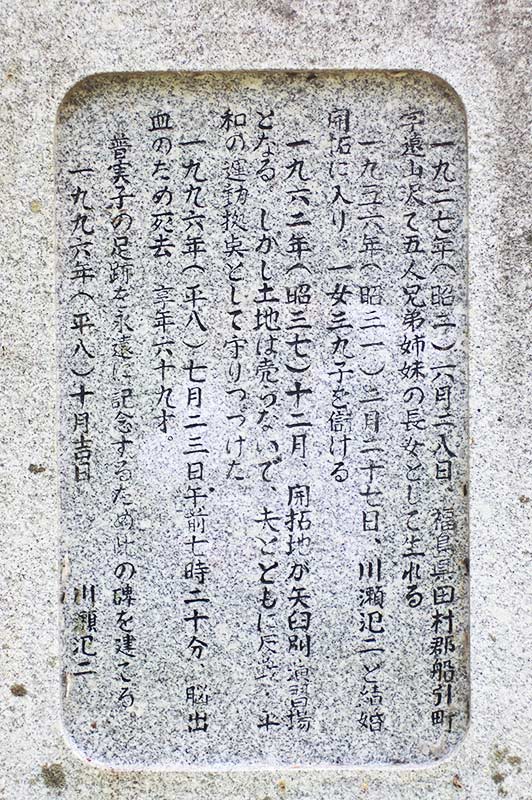 一九二七年(昭二)六月二八日、福島県田村郡船引町
字遠山沢で五人兄弟姉妹の長女として生れる
一九五六年(昭三一)二月二十七日、川瀬氾二と結婚
開拓に入り、一女三九子を儲ける
一九六二年(昭三七)十二月、開拓地が矢臼別演習場
となる。しかし土地は売らないで、夫とともに反戦・平
和の運動拠点として守りつづけた
一九九六年(平八)七月二三日午前七時二十分、脳出
血のため死去。享年六十九才。
普実子の足跡を永遠に記念するため此の碑を建てる。
一九九六年(平八)十月吉日
川瀬氾二